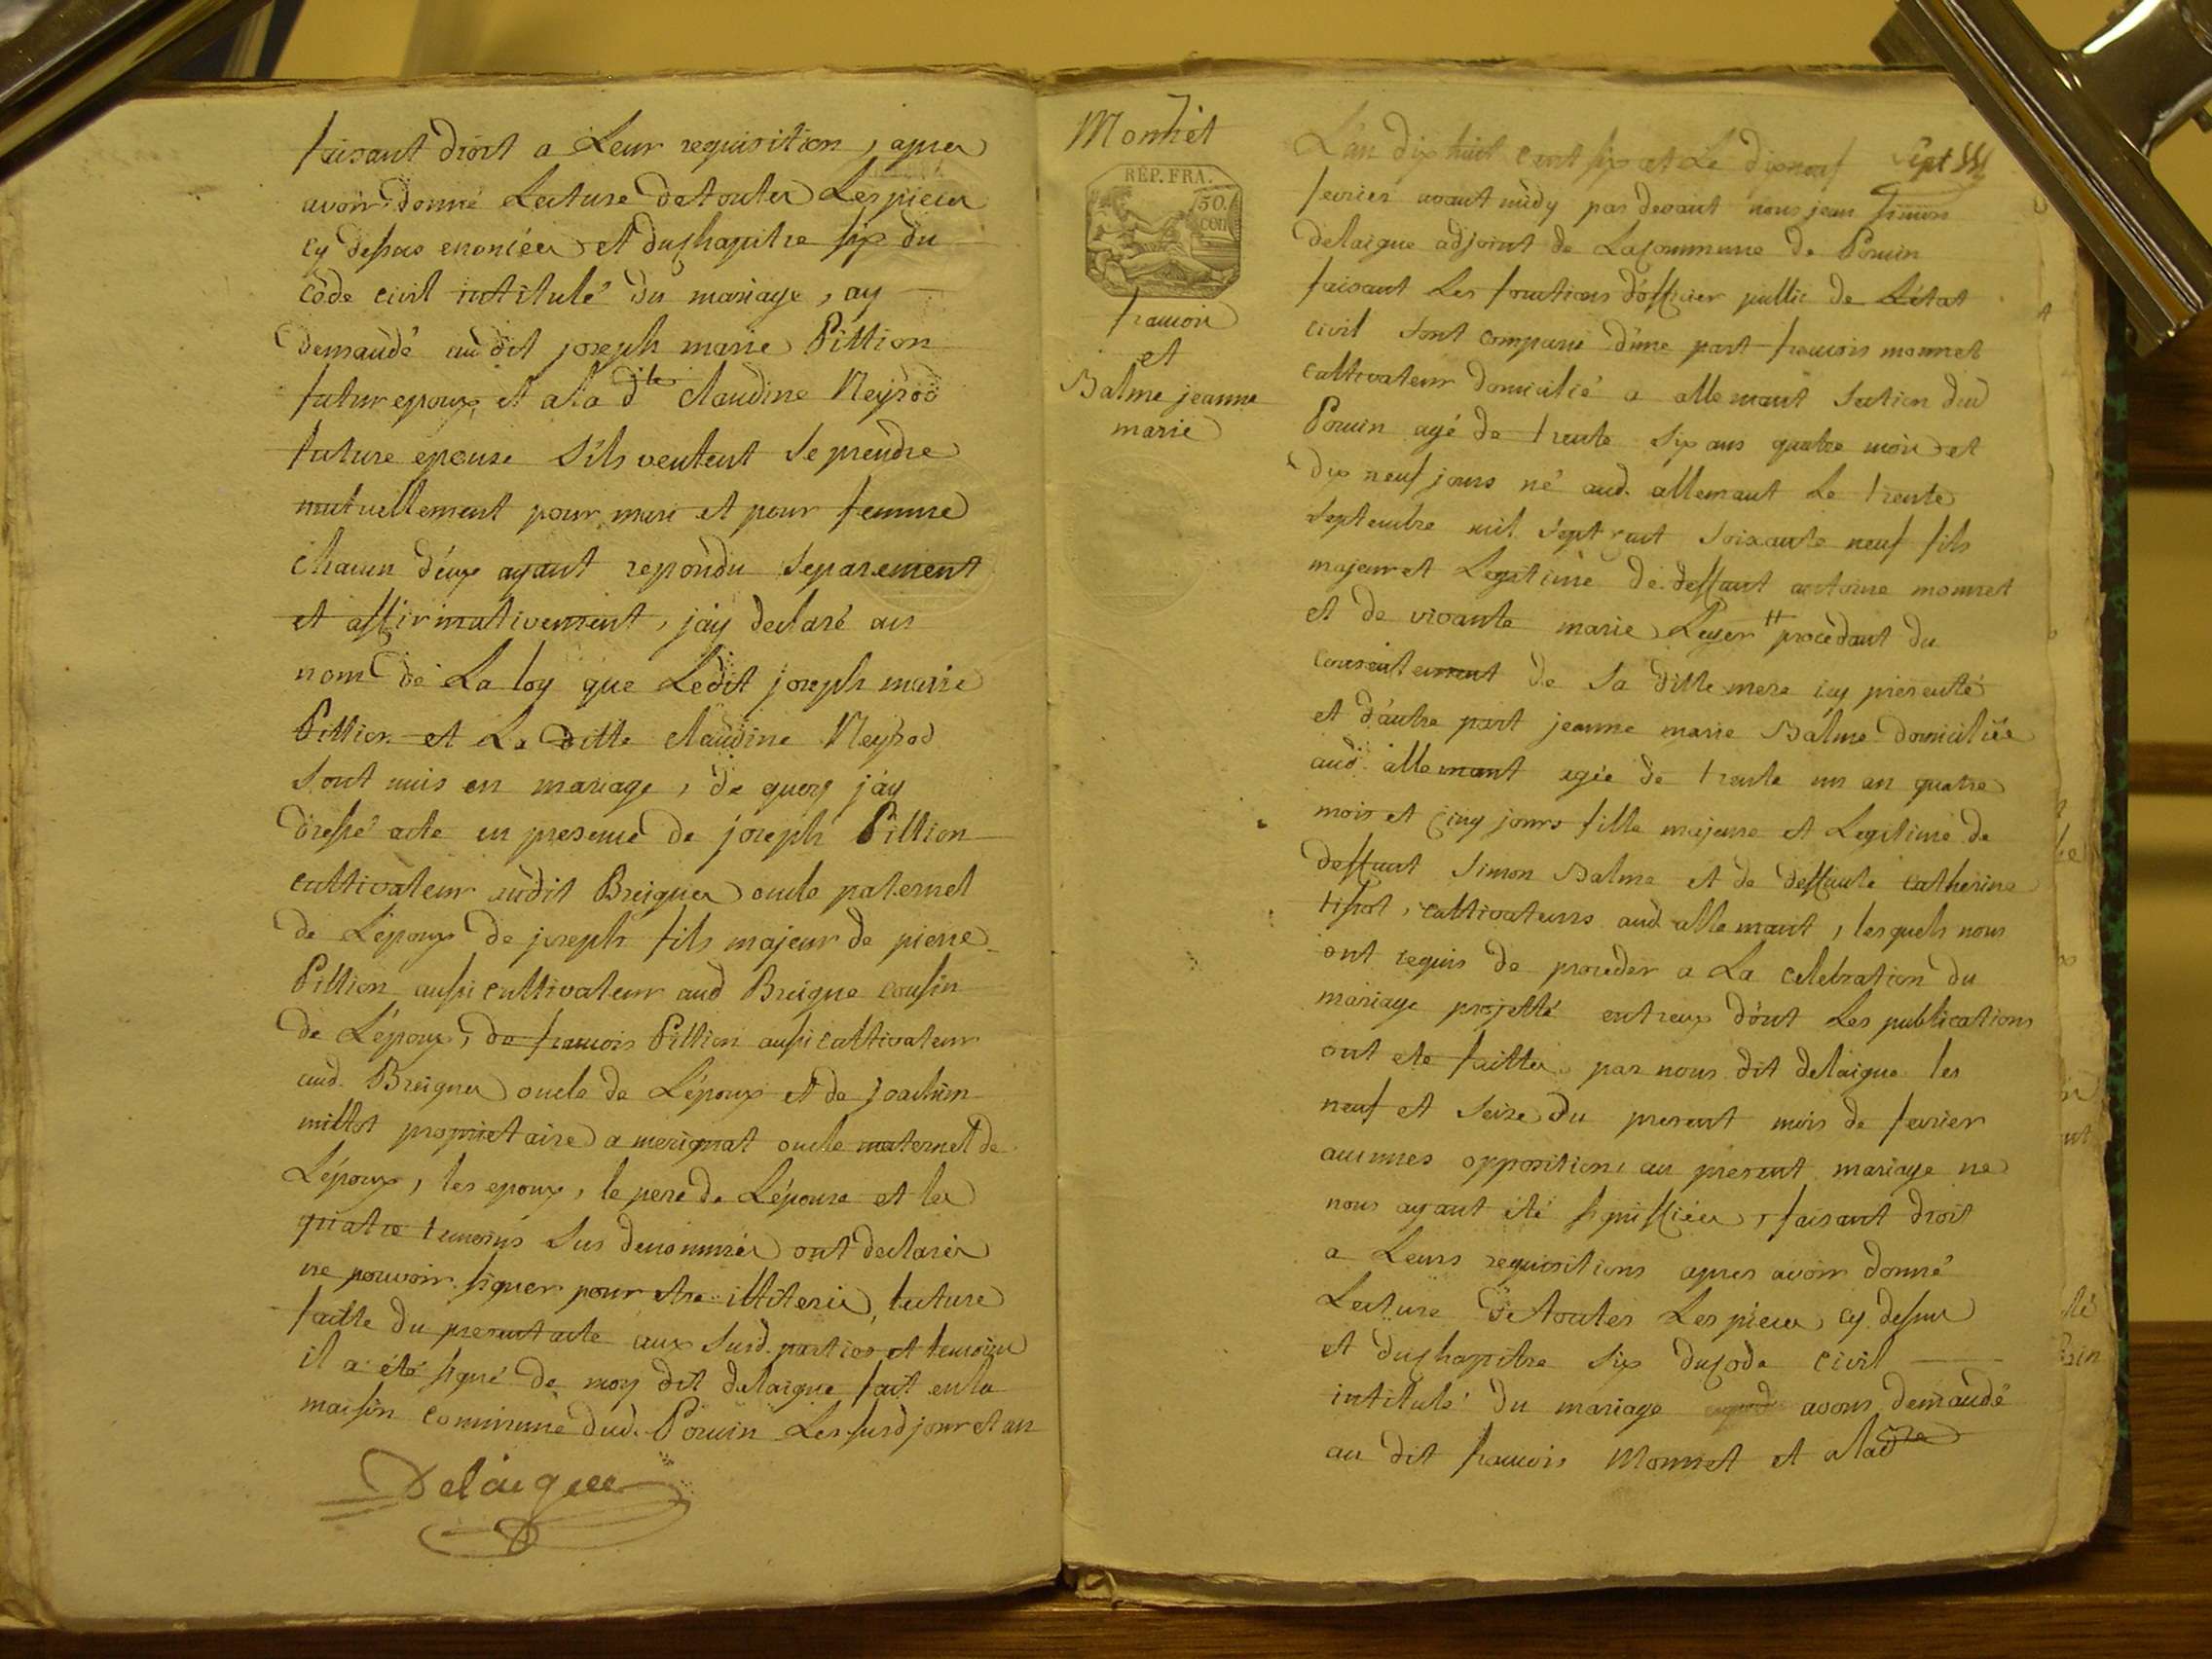 faisant droit a Leur requisition, apres
avoir donné Lecture de toutes Les pieces
cy dessus enonciées et du chapitre six du
code civil intitulé du mariage, ay
demandé au dit joseph marie Pittion
futur epoux, et a la d.lle claudine Neyrod
future epouse s'ils veulent se prendre
mutuellement pour mari et pour femme
chacun d'eux ayant repondu separement
et affirmativement, j'ay declaré au
nom de La loy que Ledit joseph marie
Pittion et La ditte claudine Neyrod
sont unis en mariage, de quoy j'ay
dressé acte en presence de joseph Pittion
cultivateur audit Breignes oncle paternel
de L'epoux de joseph fils majeur de pierre
Pittion aussi cultivateur aud Breigne cousin
de L'epoux, de francois Pittion aussi cultivateur
aud. Breignes oncle de L'epoux et de joachim
millot proprietaire a merignat oncle maternel de
L'epoux, les epoux, le pere de L'épouse et les
quatre temoins sus denommés ont declarés
ne pouvoir signer pour etre illiteris, lecture
faitte du present acte aux susd. parties et temoins
il a été signé de moy dit delaigue fait en la
maison commune dud. Poncin Les susd jour et an
Delaigue
Monnet
REP. FRA.
50.
francois
et
Balme jeanne
marie
L'an dix huit cent six et Le dix neuf
fevrier avant midy par devant nous jean Simon
delaigue adjoint de La commune de Poncin
faisant Les fonctions d'officier public de L'état
civil sont comparu d'une part francois monnet
cultivateur domicilié a allemant section dud
Poncin agé de trente six ans quatre mois et
dix neuf jours né aud. allemant Le trente
septembre mil sept cent soixante neuf fils
majeur et Legitime de deffunt antoine monnet
et de vivante marie Leger procedant du
consentement de sa ditte mere icy presente
et d'autre part jeanne marie Balme domiciliée
aud. allemant agée de trente un an quatre
mois et cinq jours fille majeure et Legitime de
deffunt Simon Balme et de deffunte catherine
tissot, cultivateurs aud allemant, les quels nous
ont requis de proceder a La celebration du
mariage projetté entreux d'ont Les publications
ont ete faittes par nous dit delaigue les
neuf et seize du present mois de fevrier
aucunes oppositions au present mariage ne
nous ayant été signiffiées, faisant droit
a Leurs requisitions apres avoir donné
Lecture de toutes Les pieces cy dessus
et du chapitre six du code civil
intitulé du mariage avons demandé
au dit francois Monnet et a la d